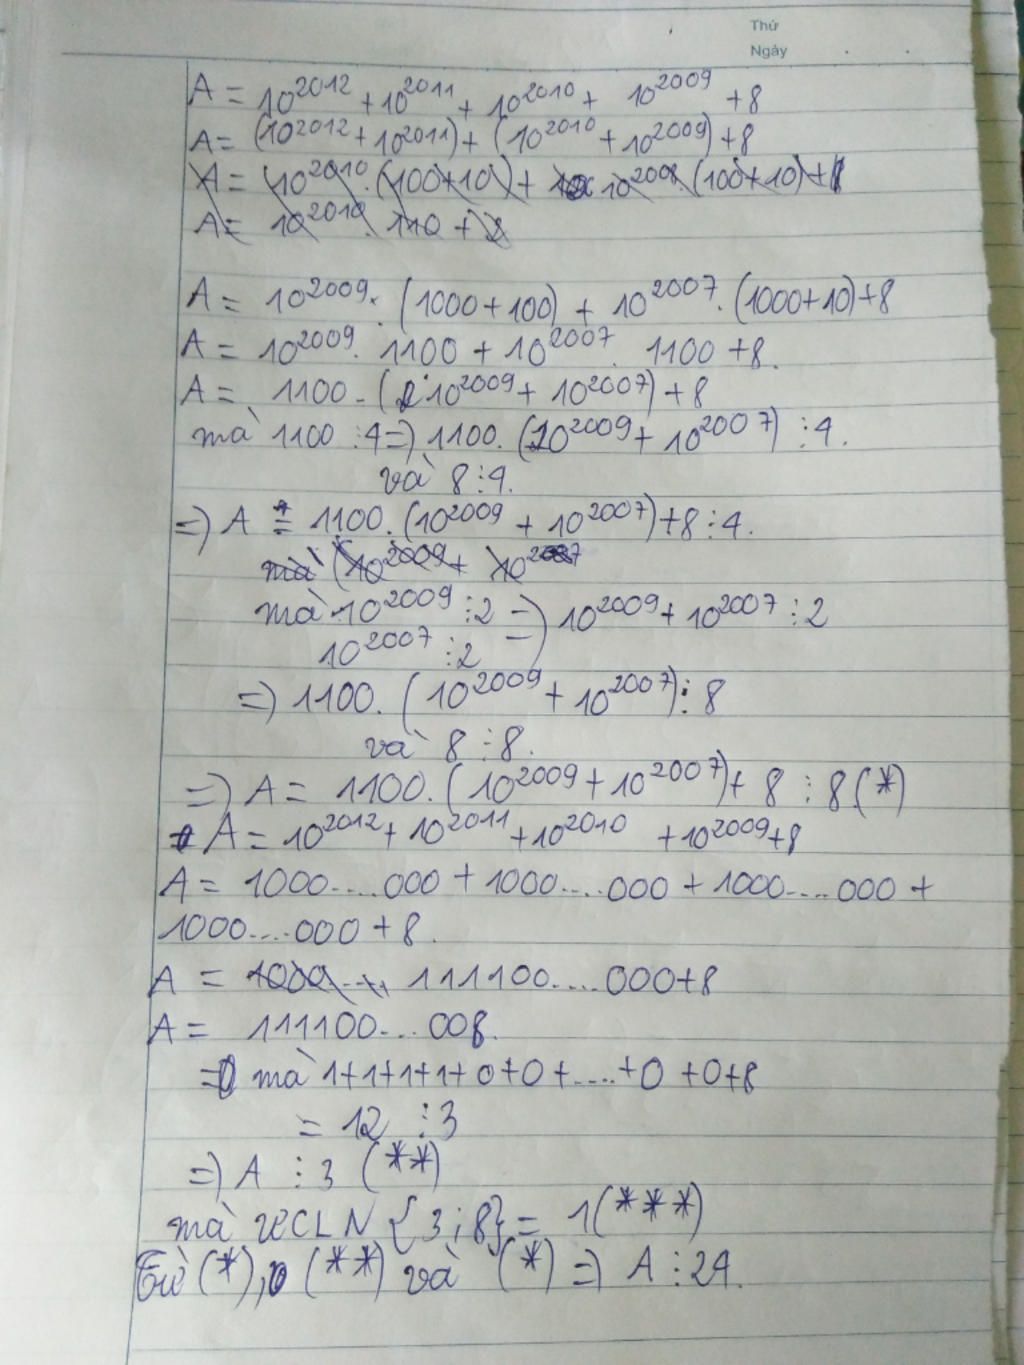 Thứ
Ngày
A = 10^2012 + 10^2011 + 10^2010 + 10^2009 + 8
A = (10^2012 + 10^2011) + (10^2010 + 10^2009) + 8
A = 10^2010 . (100+10) + 10^2008 . (100+10) + 8
A = 10^2010 . 110 + 8
A = 10^2009 . (1000+100) + 10^2007 . (1000+10) + 8
A = 10^2009 . 1100 + 10^2007 . 1100 + 8.
A = 1100 - (10^2009 + 10^2007) + 8
mà 1100 ⋮ 4 => 1100. (10^2009 + 10^2007) ⋮ 4.
và 8 ⋮ 4.
=> A = 1100. (10^2009 + 10^2007) + 8 ⋮ 4.
mà (10^2009 + 10^2007
mà 10^2009 ⋮ 2 => 10^2009 + 10^2007 ⋮ 2
10^2007 ⋮ 2
=> 1100. (10^2009 + 10^2007) ⋮ 8
và 8 ⋮ 8.
=> A = 1100. (10^2009 + 10^2007) + 8 ⋮ 8 (*)
A = 10^2012 + 10^2011 + 10^2010 + 10^2009 + 8
A = 1000....000 + 1000....000 + 1000....000 +
1000....000 + 8.
A = 1000... 111100....000+8
A = 111100...008.
= mà 1+1+1+1+0+0+....+0+0+8
= 12 ⋮ 3
=> A ⋮ 3 (**)
mà ƯCLN {3;8} = 1(***)
Từ (*), (**) và (*) => A ⋮ 24.